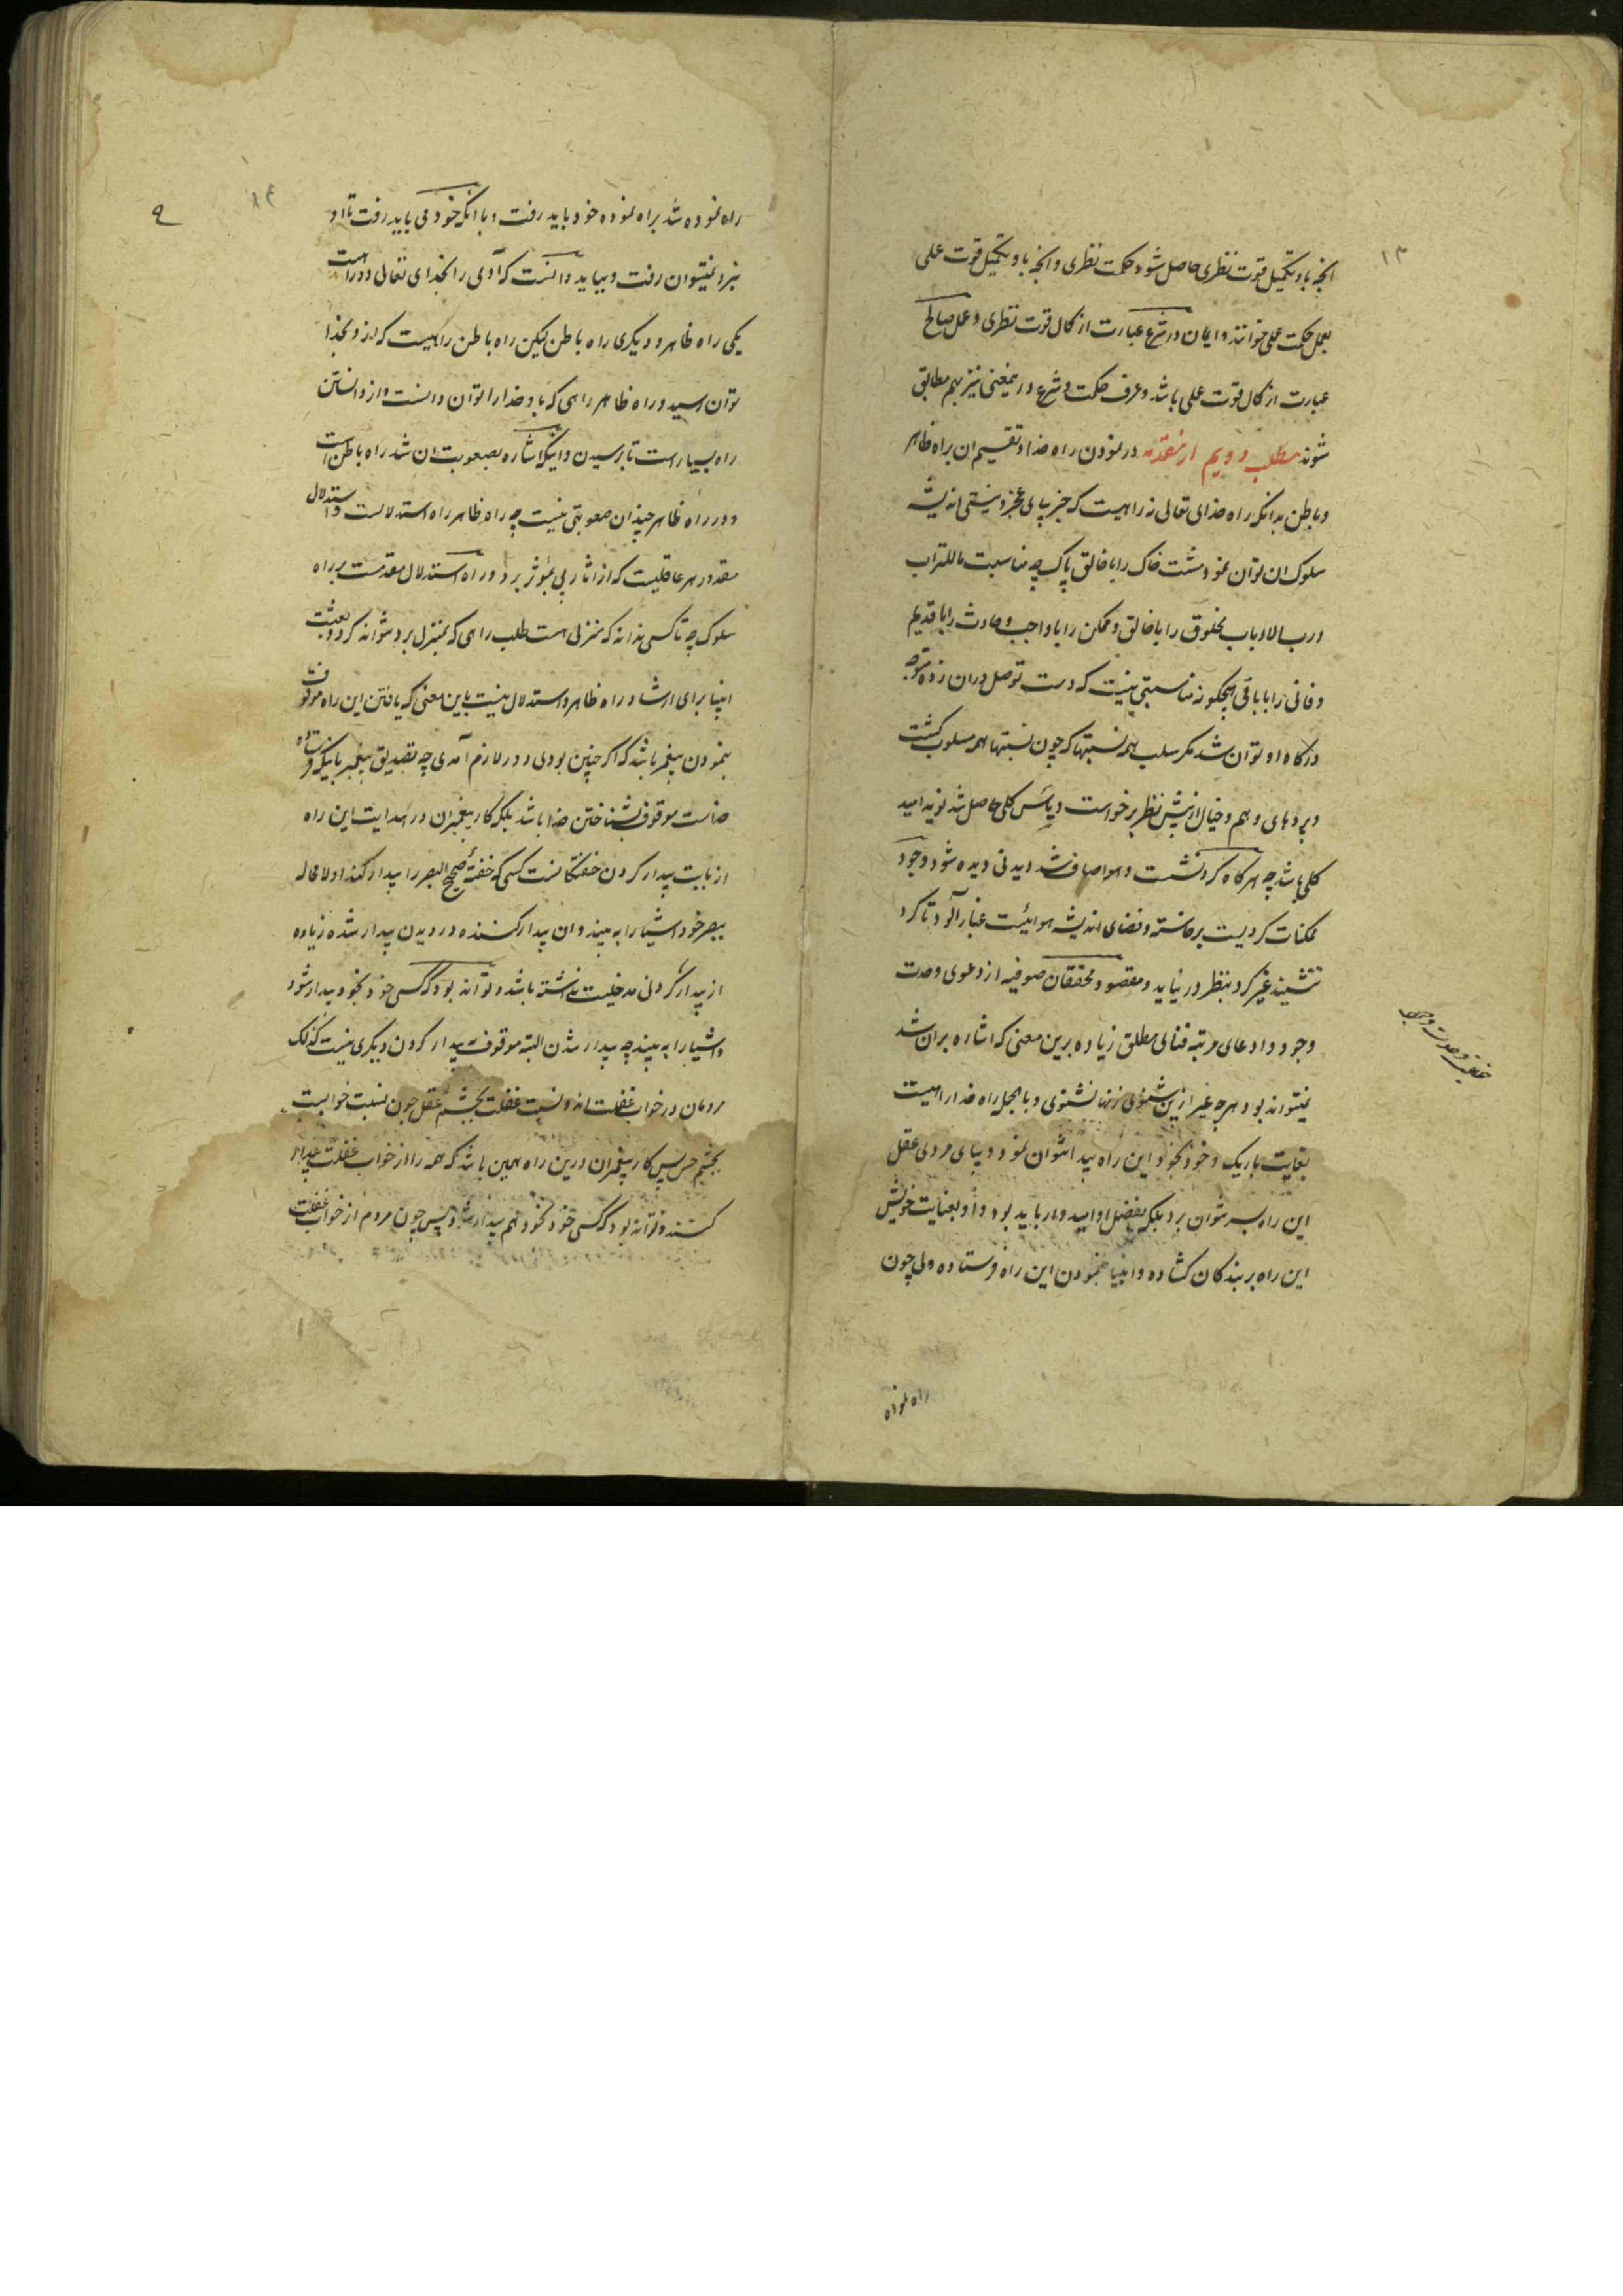 ۱۳
انچه باو تکمیل قوت نظری حاصل شود حکمت نظری و انچه باو تکمیل قوت عملی
بعمل حکمت عملی خوانند و ایمان در شرع عبارت از کمال قوت نظری و عمل صالح
عبارت از کمال قوت عملی باشد و عرف حکمت و شرع درینمعنی نیز بهم مطابق
شوند مطلب دویم از مقدمه در نمودن راه خدا و تقسیم ان براه ظاهر
و باطن بدانکه راه خدای تعالی نه راهیست که جز بپای عجز و نیستی اندیشه
سلوک ان توان نمود مشت خاک را با خالق پاک چه مناسبت ما للتراب
و رب الارباب مخلوق را با خالق و ممکن را با واجب و حادث را با قدیم
و فانی را با باقی هیچگونه مناسبتی نیست که دست توصل دران زده متوجه
درگاه او توان شد مگر سلب همه نسبتها که چون نسبتها همه مسلوب گشت
و پردهای وهم و خیال از پیش نظر برخواست و یاس کلی حاصل شد نوید امید
کلی باشد چه هرگاه گرد نشست و هوا صاف شد دیدنی دیده شود وجود
ممکنات گردیست برخاسته و فضای اندیشه هوائیست غبار آلود تا گرد
ننشیند غیر گرد بنظر در نیاید و مقصود محققان صوفیه از دعوی وحدت
وجود و ادعای مرتبه فنای مطلق زیاده برین معنی که اشاره بران شد
نمیتواند بود و هرچه غیر ازین شنوی زنهار نشنوی و بالجمله راه خدا راهیست
بغایت باریک و خود بخود این راه پیدا نتوان نمود و بپای مردی عقل
این راه بسر نتوان برد بلکه بفضل او امیدوار باید بود و او بعنایت خویش
این راه بر بندگان گشاده و انبیا بنمودن این راه فرستاده ولی چون
راه نمود
۱۴
۹
راه نموده شد براه نموده خود باید رفت و با انکه خود می باید رفت تا او
نبرد نمیتوان رفت و بباید دانست که آدمی را بخدای تعالی دو راهست
یکی راه ظاهر و دیگری راه باطن لیکن راه باطن راهیست که ازو بخدا
توان رسید و راه ظاهر راهی که باو خدا را توان دانست و از دانستن
راه بسیار است تا برسیدن و اینکه اشاره بصعوبت ان شد راه باطن است
و در راه ظاهر چندان صعوبتی نیست چه راه ظاهر راه استدلالست و استدلال
مقدور هر عاقلیست که از اثار پی بموثر برد و راه استدلال مقدمست بر راه
سلوک چه تا کسی نداند که منزلی هست طلب راهی که بمنزل برد نتواند کرد و بعثت
انبیا برای ارشاد راه ظاهر و استدلال نیست باین معنی که یافتن این راه موقوف
بنمودن پیغمبر باشد که اگر چنین بودی دور لازم آمدی چه تصدیق پیغمبر باینکه فرستاده
خداست موقوف بشناختن خدا باشد بلکه کار پیغمبران در هدایت این راه
از بابت بیدار کردن خفتگانست کسی که خفتهٔ صحیح البصر را بیدار کند او لا محاله
ببصر خود اشیا را به بیند و ان بیدار کننده در دیدن بیدار شده زیاده
از بیدار کردنی مدخلیت نداشته باشد و تواند بود که کسی خود بخود بیدار شود
و اشیا را به بیند چه بیدار شدن البته موقوف به بیدار کردن دیگری نیست کذلک
مردمان در خواب غفلت اند و نسبت غفلت بچشم عقل چون نسبت خوابست
بچشم حس پس کار پیغمبران درین راه همین باشد که همه را از خواب غفلت بیدار
کنند و تواند بود که کسی خود بخود هم بیدار شود پس چون مردم از خواب غفلت